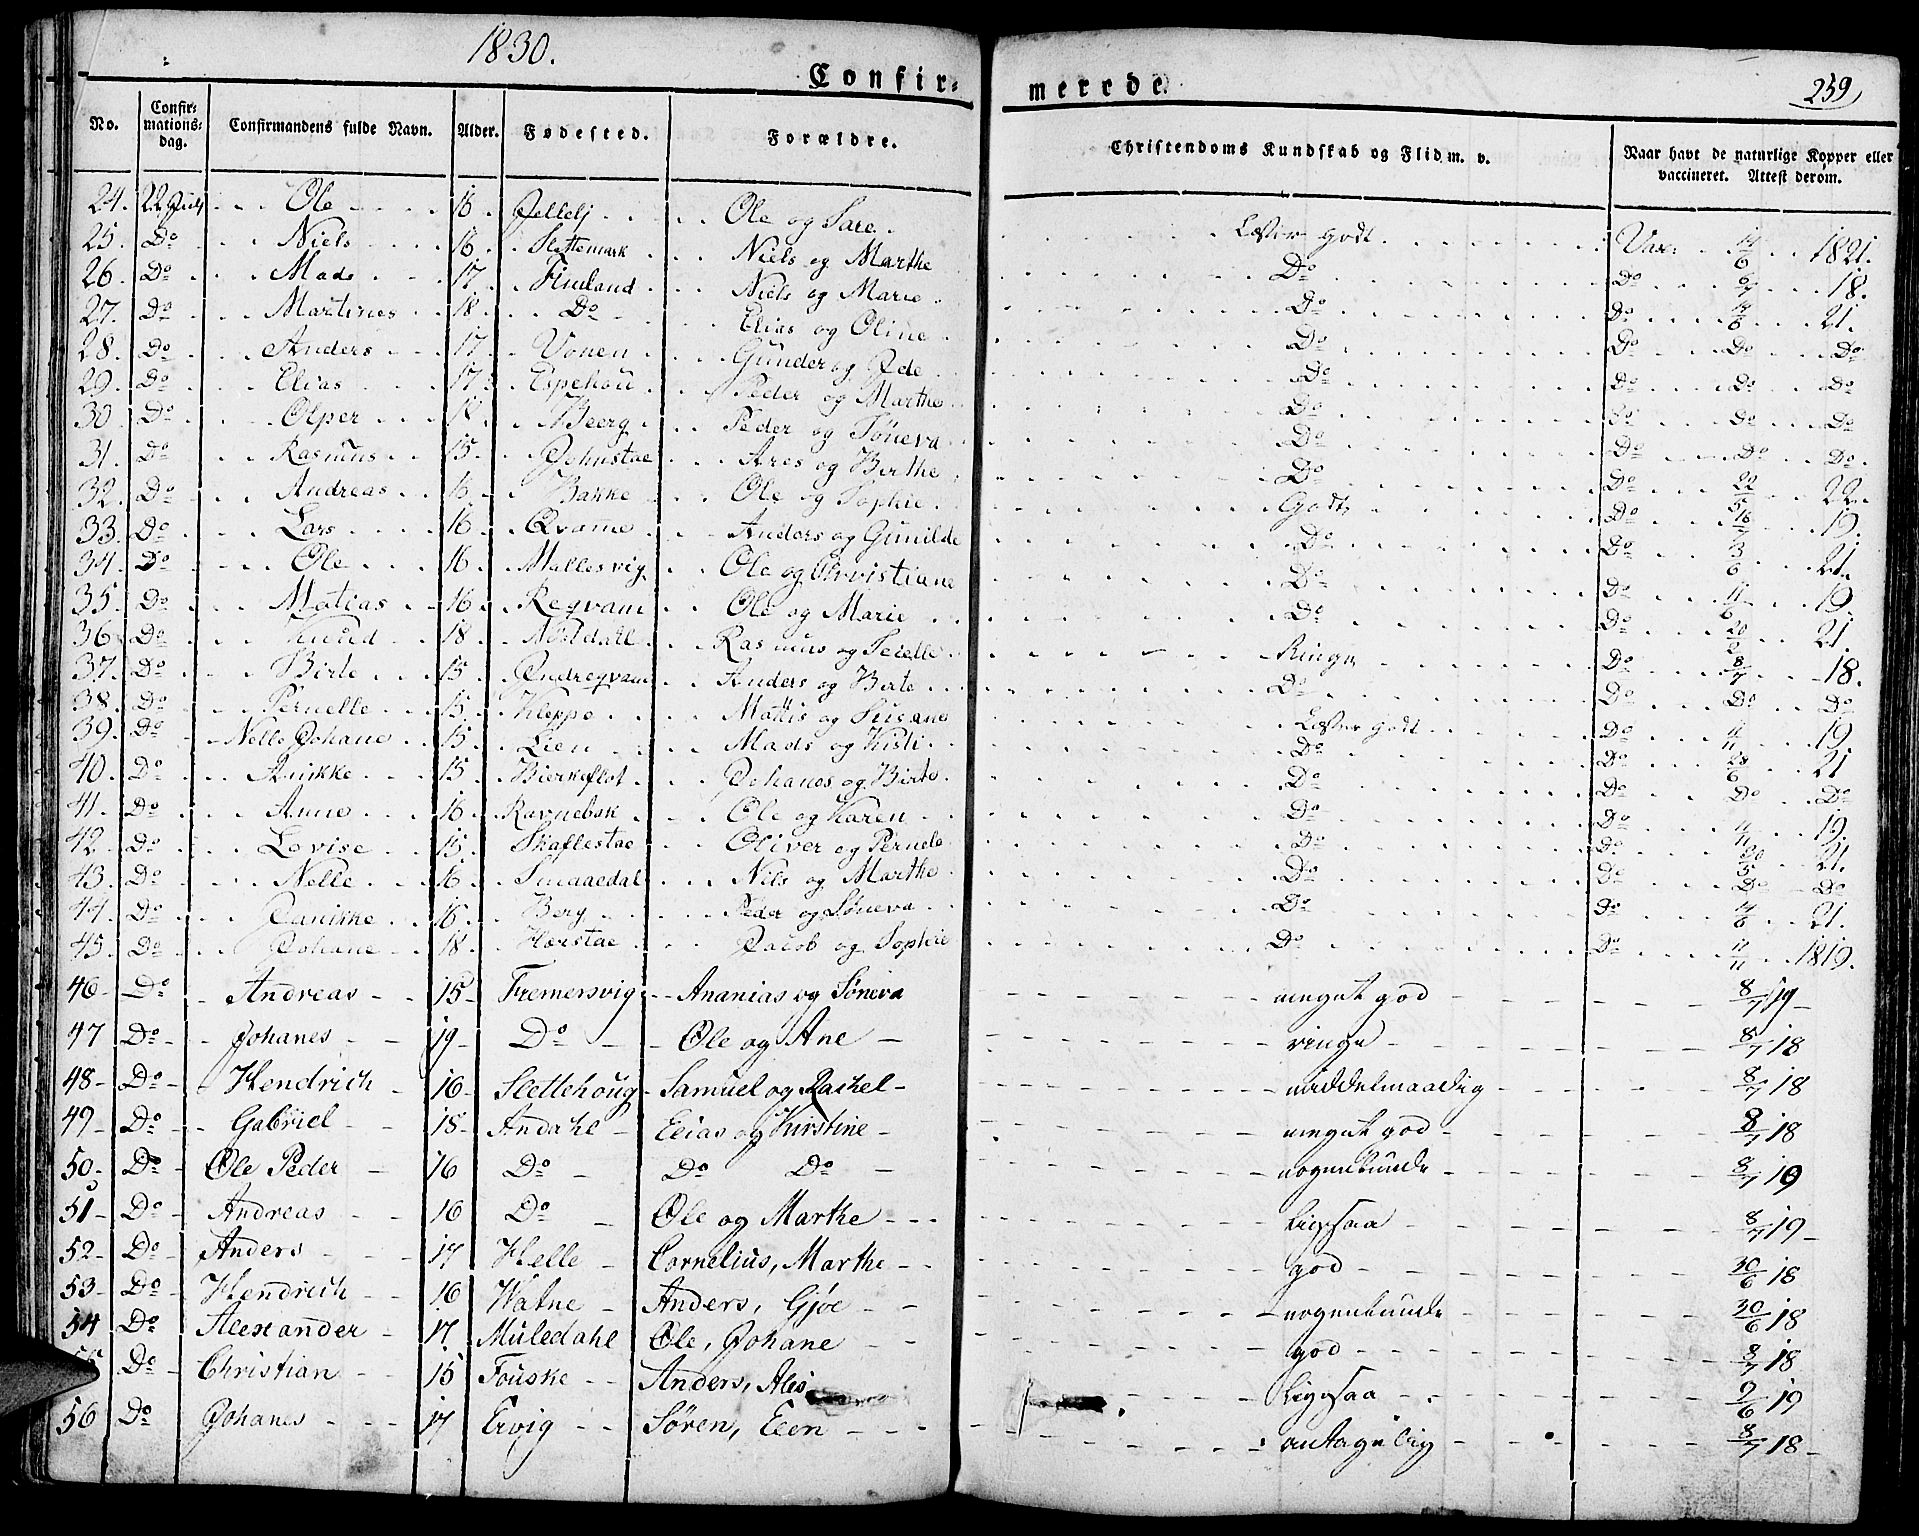 1830.
Confirmerede.
259
No. Confirmationsdag. Confirmandens fulde Navn. Alder. Fødested. Forældre. Christendoms Kundskab og Flid m. v. Naar havt de naturlige Kopper eller vaccineret. Attest derom.
24. 22 July Ole 16 Jelle Ole og Sare Læser godt Vax: 14/6 1821.
25. Do Niels 16 Slettemark Niels og Marthe Do Do 6/7 18.
26. Do Mads 17 Finland Niels og Marie Do Do 14/6 21.
27. Do Martines 18 Do Elias og Oline Do Do Do Do
28. Do Anders 17 Vonen Gunder og Do Do Do Do
29. Do Elias 17 Espehou Peder og Marthe Do Do Do Do
30 Do Olper Berg Peder og Søneva Do Do Do Do
31. Do Rasmus 15 Johnstae Ares og Birthe Do Do 22/5 22.
32. Do Andreas 16 Bakke Ole og Sophie Godt Do 16/7 19.
33. Do Lars 16 Qvame Anders og Gunilde Do Do 3/6 21.
34. Do Ole 16 Mallesvig Ole og Christiane Do Do 11/6 19.
35. Do Matias 16 Regvam Ole og Marie Do Do 20 21.
36 Do Knud 18 Nøstdahl Rasmus og Ringe Do 8/7 18.
37. Do Birte 15 Endregvam Anders og Birte Do Do Do Do
38. Do Pernelle 15 Kleppe Mattis og Susane Læser godt Do 4/11 19
39. Do Nelle Johane 15 Lien Mads og Kisti Do Do 28/6 21
40. Do Anikke 15 Bierkeflot Johanes og Birte Do Do Do Do
41. Do Anne 16 Ravnebak Ole og Karen Do Do 4/11 19.
42 Do Lovise 15 Skaflestae Oliver og Pernele Do Do 20/5 21.
43. Do Nelle 16 Smaaedal Nils og Marthe Do Do Do Do
44 Do Janikke 16 Berg Peder og Søneva Do Do 14/6 21.
45. Do Johane 18 Hærstae Jacob og Sophie Do Do 11/11 1819.
46 Do Andreas 15 Fremersvig Ananias og Søneva meget god 8/7 19
47 Do Johanes 19 Do Ole og Ane ringe 8/7 18
48 Do Hendrich 16 Slettehoug Samuel og Rachel middelmaadig 8/7 18
49 Do Gabriel 18 Andahl Elias og Kirstine meget god 8/7 18
50 Do Ole Peder 16 Do Do Do nogenlunde 8/7 19
51 Do Andreas 16 Do Ole og Marthe ligesaa 8/7 19
52 Do Anders 17 Helle Cornelius, Marthe god 30/6 18
53 Do Hendrich 16 Watne Anders, Gjøe nogenlunde 30/6 18
54 Do Alexander 17 Muledahl Ole, Johane god 8/7 18
55 Do Christian 15 Fouske Anders, Ales ligesaa 9/6 19
56 Do Johanes 17 Ervig Søren, Elen antagelig 8/7 18